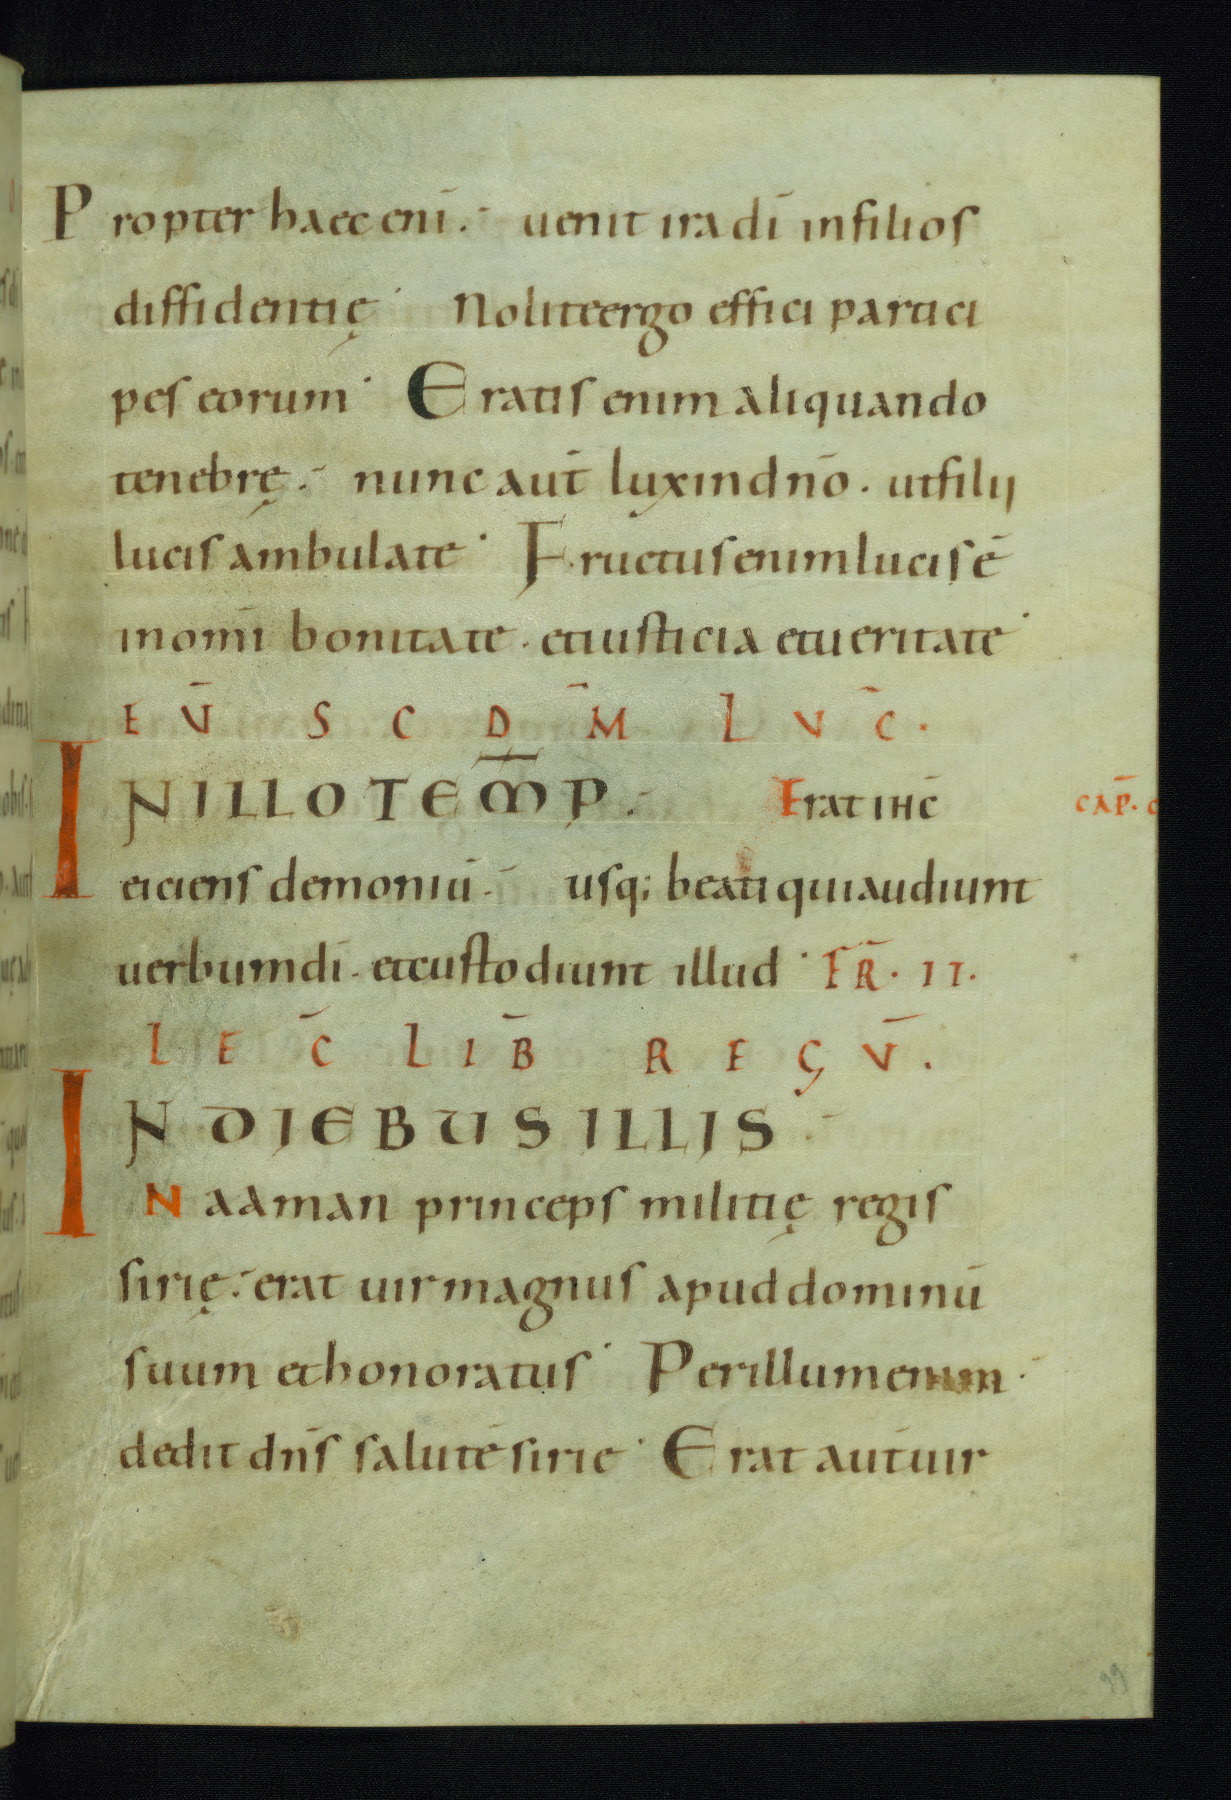 Propter haec enī. uenit ira dī in filios
diffidentię. Nolite ergo effici partici
pes eorum. Eratis enim aliquando
tenebrę. nunc aut̄ lux in dn̄o. ut filii
lucis ambulate. Fructus enim lucis ē
in omī bonitate. et iusticia et ueritate.
EV̄ SCDM̄ LVC̄.
IN ILLO TEM̄P. Erat ihc̄
CAP̄.
eiciens demoniū. usq; beati qui audiunt
uerbum dī. et custodiunt illud. FR̄. II.
LEC̄ LIB̄ REGV̄.
IN DIEBUS ILLIS.
Naaman princeps militię regis
sirię. erat uir magnus apud dominū
suum et honoratus. Per illum enim
dedit dn̄s salutē sirie. Erat aut̄ uir
99